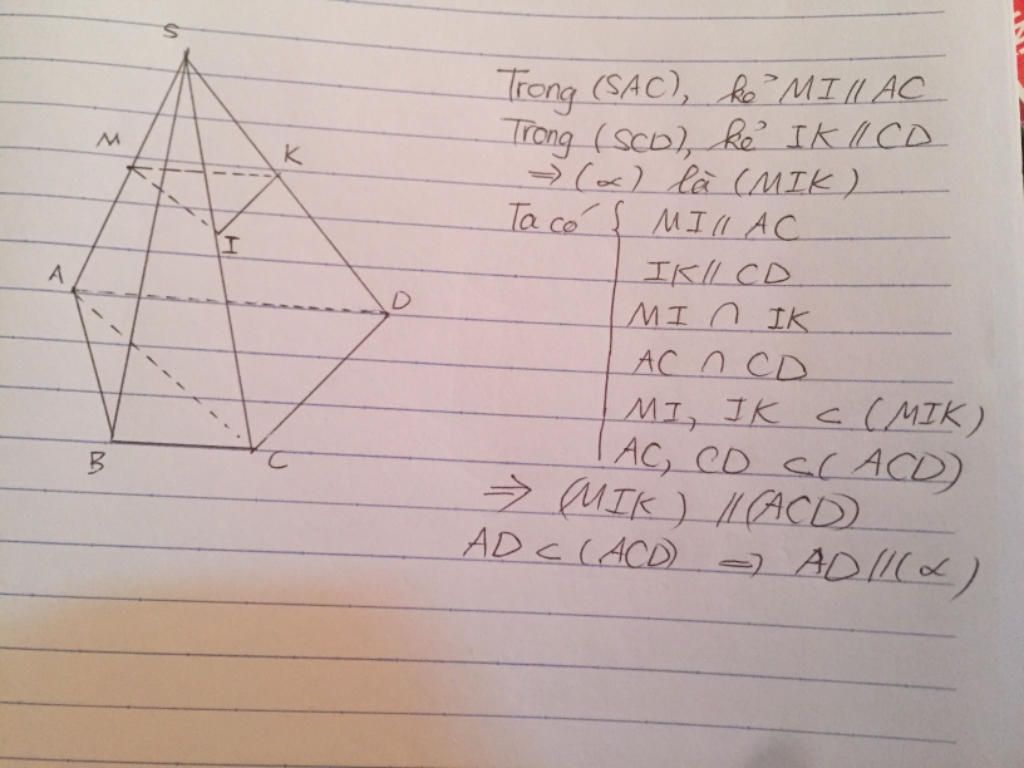 S
M
K
I
A
D
B
C
Trong (SAC), kẻ MI // AC
Trong (SCD), kẻ IK // CD
⇒ (α) là (MIK)
Ta có { MI // AC
IK // CD
MI ∩ IK
AC ∩ CD
MI, IK ⊂ (MIK)
AC, CD ⊂ (ACD)
⇒ (MIK) // (ACD)
AD ⊂ (ACD) ⇒ AD // (α)